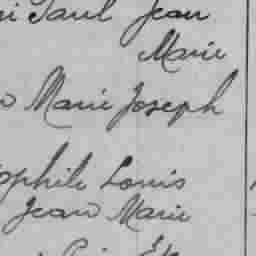 Paul Jean
Marie
Marie Joseph
ophile Louis
Jean Marie